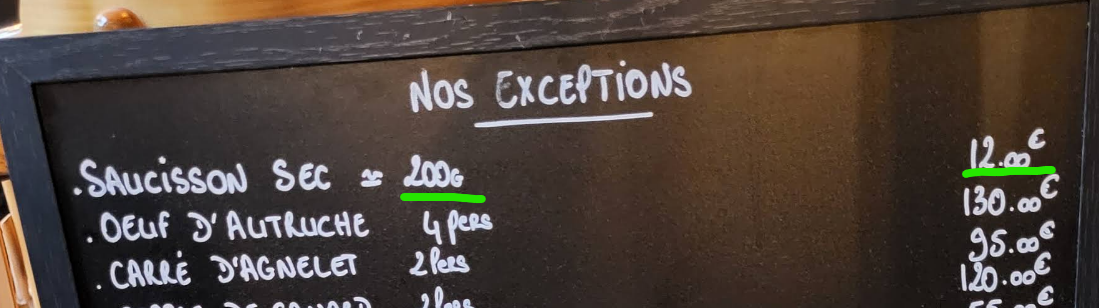 NOS EXCEPTIONS
. SAUCISSON SEC ≃ 200G 12.00€
. OEUF D'AUTRUCHE 4 Pers 130.00€
. CARRÉ D'AGNELET 2 Pers 95.00€
2 Pers 120.00€